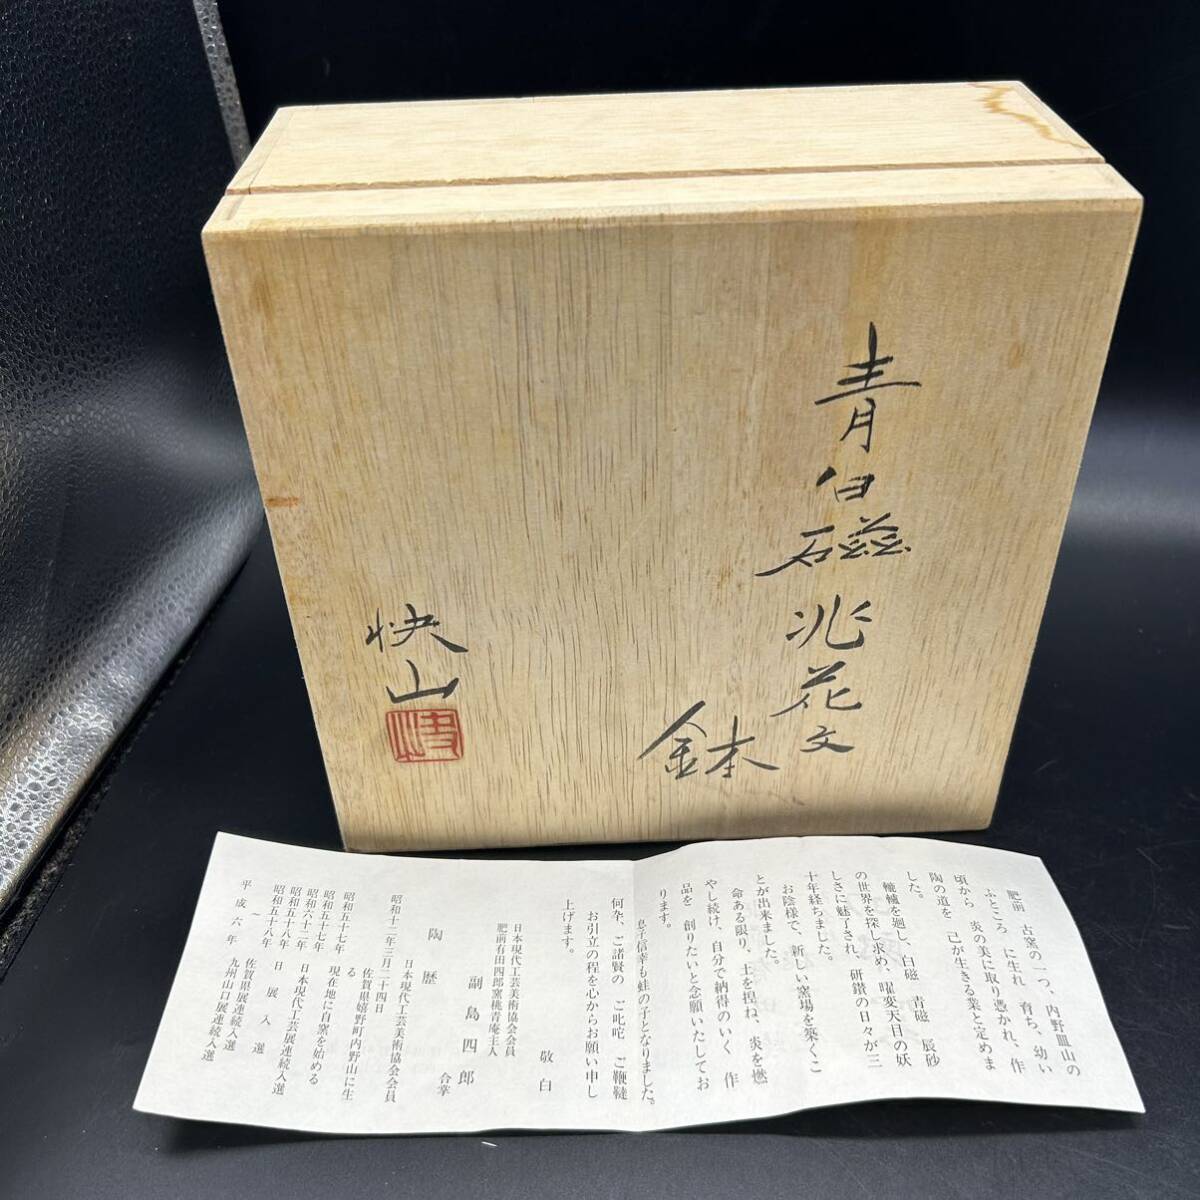 青白磁
兆花文
鉢
快山
快山
肥前 古窯の一つ、内野皿山の
ふところ に生れ 育ち、幼い
頃から 炎の美に取り憑かれ、作
陶の道を 己が生きる業と定めま
した。
轆轤を廻し、白磁 青磁 辰砂
の世界を探し求め、曜変天目の妖
しさに魅了され、研鑽の日々が三
十年経ちました。
お陰様で、新しい窯場を築くこ
とが出来ました。
命ある限り、土を捏ね、炎を燃
やし続け、自分で納得のいく 作
品を 創りたいと念願いたしてお
ります。
息子信幸も蛙の子となりました。
何卆、ご諸賢の ご叱咤 ご鞭韃
お引立の程を心からお願い申し
上げます。
敬白
日本現代工芸美術協会会員
肥前有田四郎窯桃青庵主人
副島四郎
合掌
陶歴
日本現代工芸美術協会会員
昭和十二年三月二十四日
佐賀県嬉野町内野山に生
る
昭和五十七年 現在地に自窯を始める
昭和六十二年 日本現代工芸展連続入選
昭和五十八年 日展入選
昭和五十八年 佐賀県展連続入選
～
平成六年 九州山口展連続入選